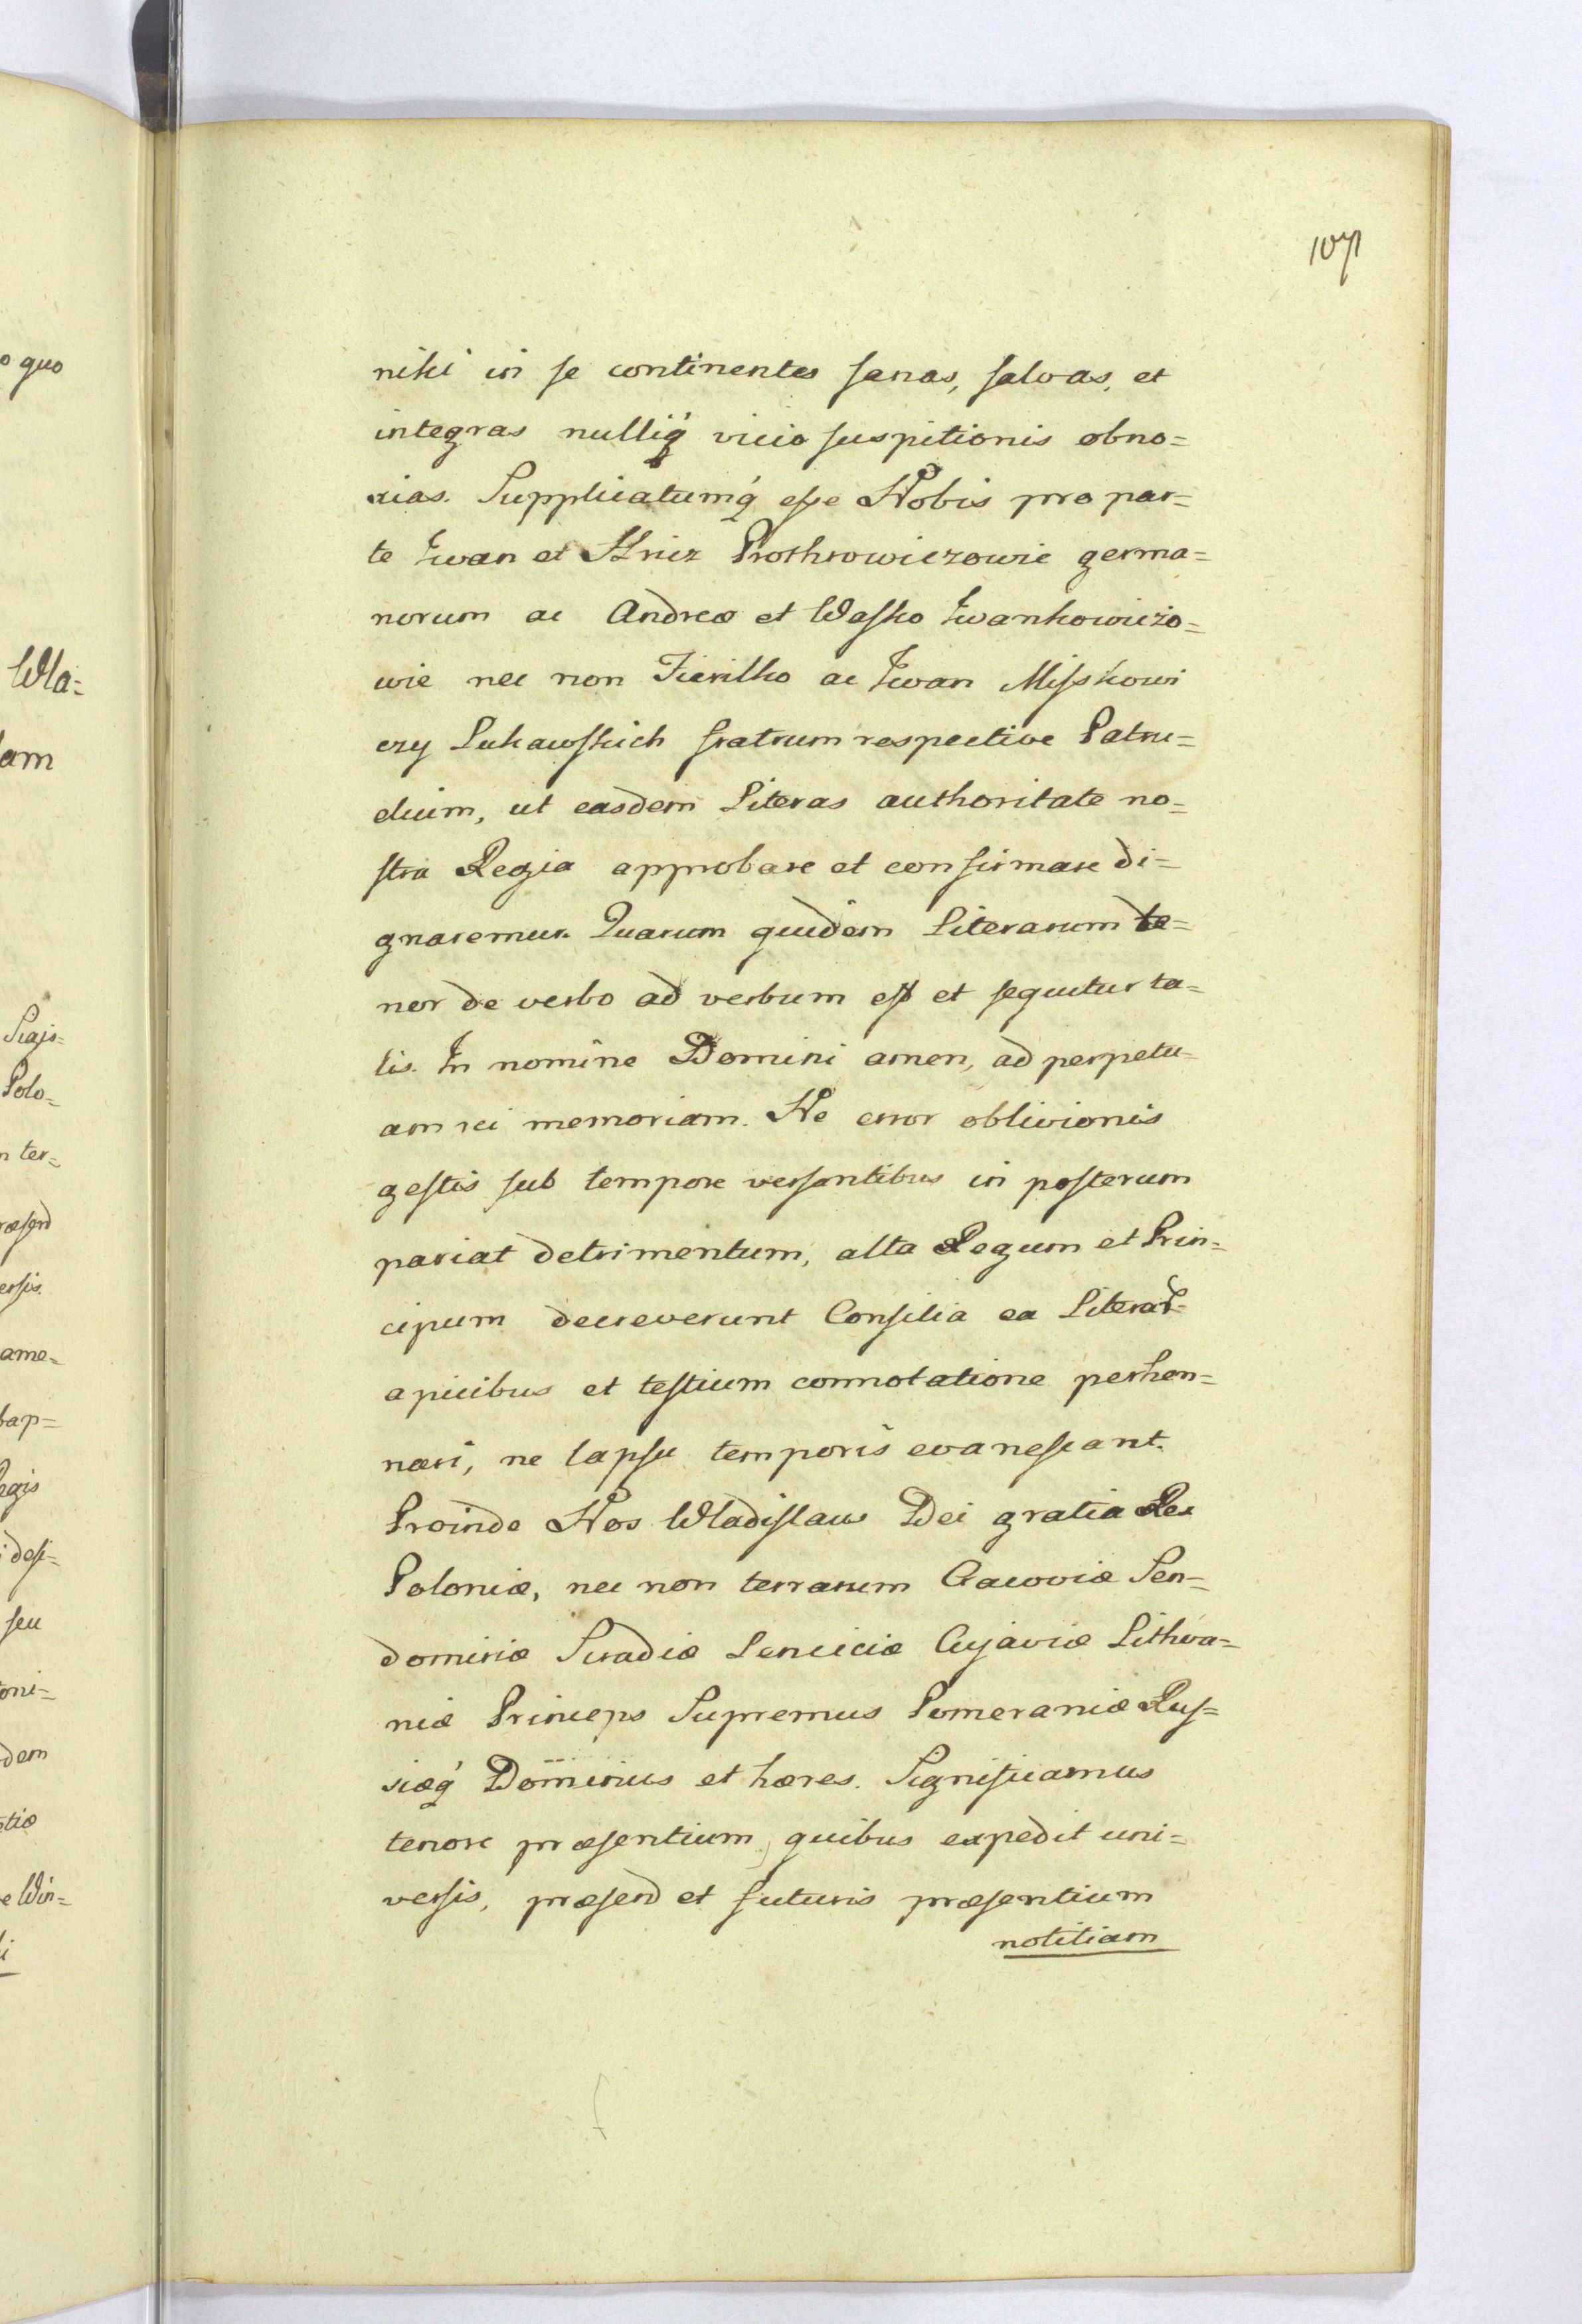 107
niki in se continentes sanas, salvas, et
integras nulliq́ vicio suspitionis obno=
xias. Supplicatumq́ esse Nobis pro par=
te Iwan et Hricz Prothrowiczowie germa=
norum ac Andreæ et Wasko Iwankowiczo=
wie nec non Fierilko ac Iwan Misskowi
czy Lukawskich fratrum respective Patru=
elium, ut easdem Literas authoritate no=
stra Regia approbare et confirmare di=
gnaremur. Quarum quidem Literarum te=
nor de verbo ad verbum est et sequitur ta=
lis. In nomine Domini amen, ad perpetu=
am rei memoriam. Ne error oblivionis
gestis sub tempore versantibus in posterum
pariat detrimentum, alta Regum et Prin=
cipum decreverunt Consilia ea Literar
apicibus et testium connotatione perhen=
nari, ne lapsu temporis evanescant.
Proinde Nos Wladislaus Dei gratia Rex
Poloniæ, nec non terrarum Cracoviæ San=
domiriæ Siradiæ Lenciciæ Cujaviæ Lithva=
niæ Princeps Supremus Pomeraniæ Rus=
siæq́ Dominus et hæres. Significamus
tenore præsentium, quibus expedit uni=
versis, præsend et futuris præsentium
notitiam
o quo
Wla=
am
Polo=
n ter=
ersis.
ame=
bap=
egis
desi=
seu
oni=
dem
tiæ
e Win=
i